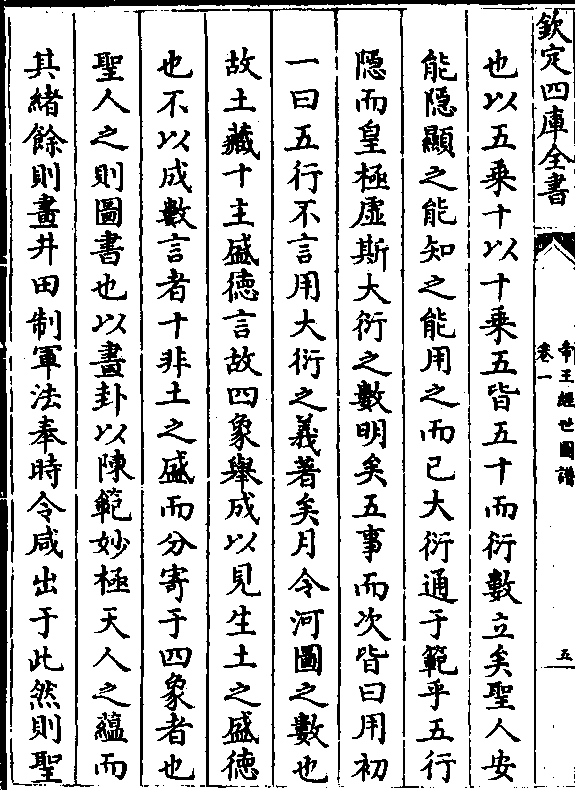 欽定四庫全書
帝王經世圖譜
卷一
五
也以五乗十以十乗五皆五十而衍數立矣聖人安
能隠顯之能知之能用之而已大衍通于範乎五行
隠而皇極虚斯大衍之數明矣五事而次皆曰用初
一曰五行不言用大衍之義著矣月令河圖之數也
故土藏十主盛徳言故四象舉成以見生土之盛徳
也不以成數言者十非土之盛而分寄于四象者也
聖人之則圖書也以畫卦以陳範妙極天人之藴而
其緒餘則畫井田制軍法奉時令咸出于此然則聖